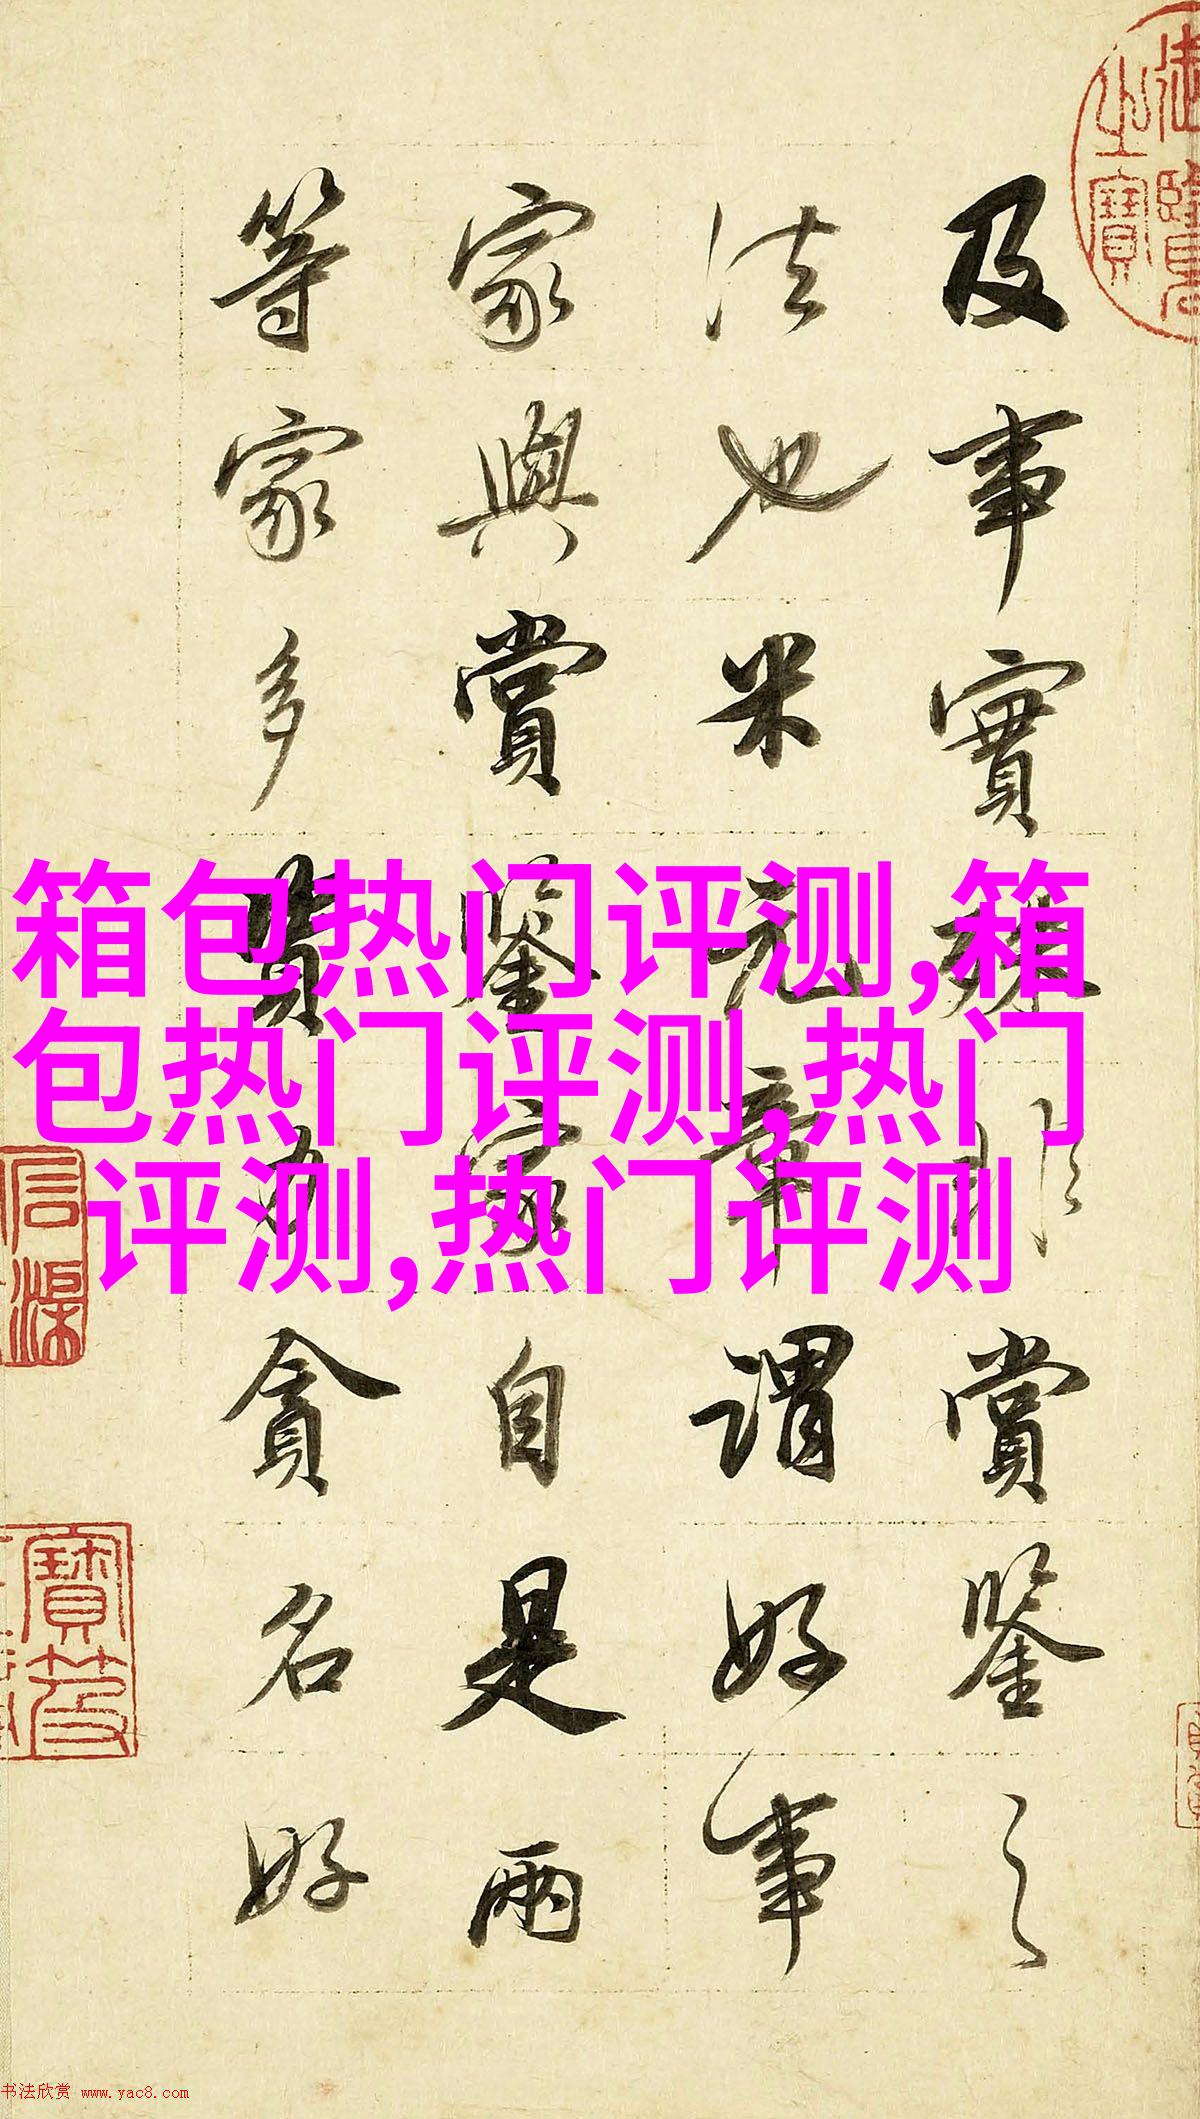 御覽
之寶
及事實殊非賞鑒之
法也米元章謂好事
家與賞鑒家自是兩
等家多資力貪名好
箱包热门评测,箱
包热门评测,热门
评测,热门评测
书法欣赏 www.yac8.com